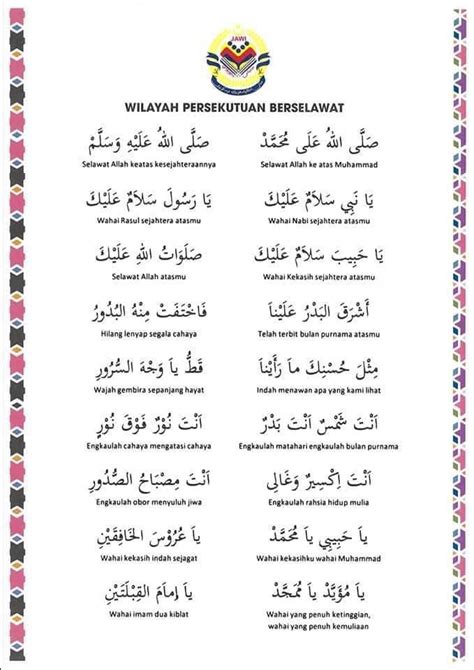 JAWI
WILAYAH PERSEKUTUAN BERSELAWAT
صَلَّى اللهُ عَلَى مُحَمَّدْ
Selawat Allah ke atas Muhammad
صَلَّى اللهُ عَلَيْهِ وَسَلَّمْ
Selawat Allah keatas kesejahteraannya
يَا نَبِي سَلاَمٌ عَلَيْكَ
Wahai Nabi sejahtera atasmu
يَا رَسُولَ سَلاَمٌ عَلَيْكَ
Wahai Rasul sejahtera atasmu
يَا حَبِيبَ سَلاَمٌ عَلَيْكَ
Wahai Kekasih sejahtera atasmu
صَلَوَاتُ اللهِ عَلَيْكَ
Selawat Allah atasmu
أَشْرَقَ الْبَدْرُ عَلَيْنَا
Telah terbit bulan purnama atasmu
فَاخْتَفَتْ مِنْهُ الْبُدُورُ
Hilang lenyap segala cahaya
مِثْلَ حُسْنِكَ مَا رَأَيْنَا
Indah menawan apa yang kami lihat
قَطُّ يَا وَجْهَ السُّرُورِ
Wajah gembira sepanjang hayat
اَنْتَ شَمْسٌ اَنْتَ بَدْرٌ
Engkaulah matahari engkaulah bulan purnama
اَنْتَ نُوْرٌ فَوْقَ نُوْرٍ
Engkaulah cahaya mengatasi cahaya
اَنْتَ اِكْسِيرٌ وَغَالِي
Engkaulah rahsia hidup mulia
اَنْتَ مِصْبَاحُ الصُّدُورِ
Engkaulah obor menyuluh jiwa
يَا حَبِيبِي يَا مُحَمَّدْ
Wahai kekasihku wahai Muhammad
يَا عَرُوْسَ الخَافِقَيْنِ
Wahai kekasih indah sejagat
يَا مُؤَيَّدْ يَا مُمَجَّدْ
Wahai yang penuh ketinggian,
wahai yang penuh kemuliaan
يَا اِمَامَ القِبْلَتَيْنِ
Wahai imam dua kiblat